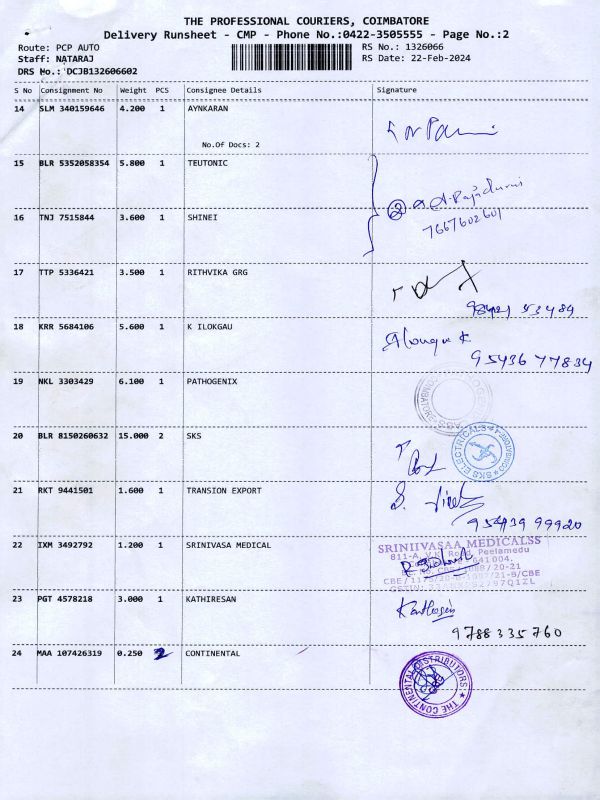 THE PROFESSIONAL COURIERS, COIMBATORE
Delivery Runsheet - CMP - Phone No.:0422-3505555 - Page No.:2
Route: PCP AUTO RS No.: 1326066
Staff: NATARAJ RS Date: 22-Feb-2024
DRS No.: DCJB132606602
S No Consignment No Weight PCS Consignee Details Signature
14 SLM 340159646 4.200 1 AYNKARAN
No.Of Docs: 2
15 BLR 5352058354 5.800 1 TEUTONIC
7667602601
16 TNJ 7515844 3.600 1 SHINEI
17 TTP 5336421 3.500 1 RITHVIKA GRG
53484
18 KRR 5684106 5.600 1 K ILOKGAU
95436 77834
19 NKL 3303429 6.100 1 PATHOGENIX
20 BLR 8150260632 15.000 2 SKS
SKS ELECTRICALS
21 RKT 9441501 1.600 1 TRANSION EXPORT
99920
22 IXM 3492792 1.200 1 SRINIVASA MEDICAL
SRINIIVASAA MEDICALSS
811-A, V.K. Road, Peelamedu
641 004.
23 PGT 4578218 3.000 1 KATHIRESAN
9788335760
24 MAA 107426319 0.250 2 CONTINENTAL
THE CONTINENTAL DISTRIBUTORS